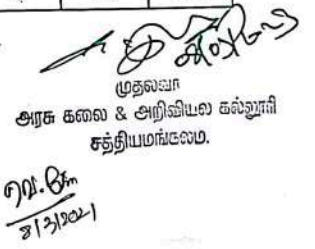 முதல்வர்
அரசு கலை & அறிவியல் கல்லூரி
சத்தியமங்கலம்.
8/3/2021